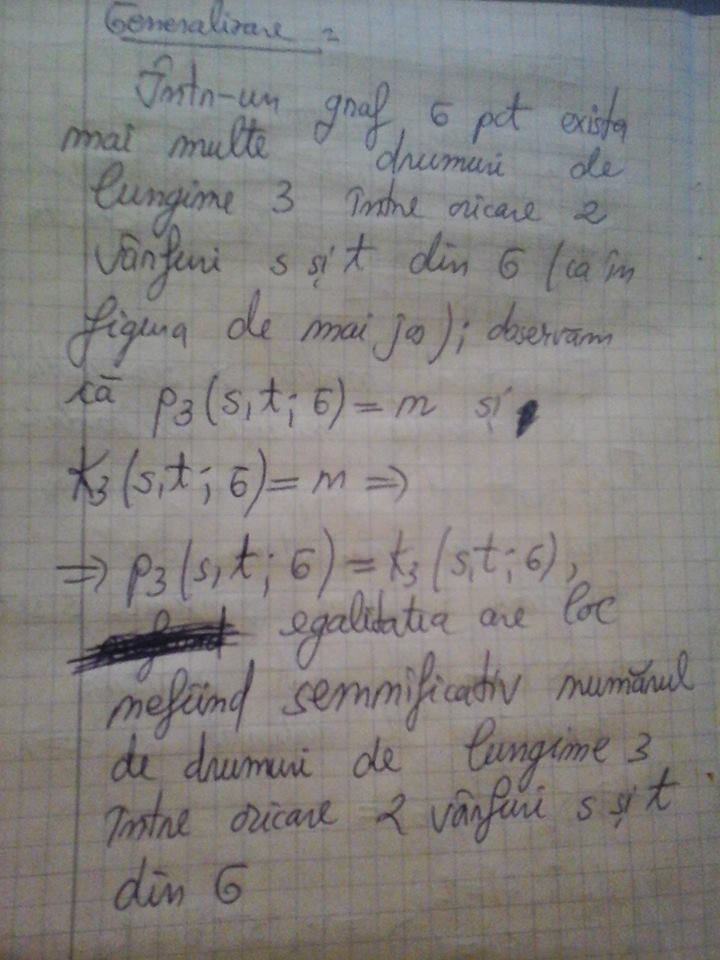 Generalizare :
Într-un graf G pot exista
mai multe drumuri de
lungime 3 între oricare 2
vârfuri s și t din G (ca în
figura de mai jos); observăm
că p₃(s,t;G)=m și
k₃(s,t;G)=m ⇒
⇒ p₃(s,t;G)=k₃(s,t;G),
egalitatea are loc
nefiind semnificativ numărul
de drumuri de lungime 3
între oricare 2 vârfuri s și t
din G